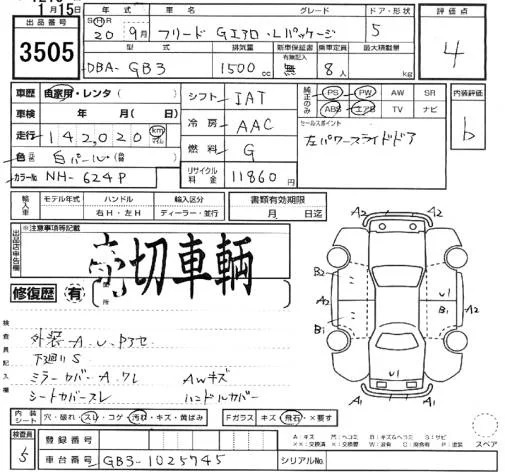 1月15日
出品番号
3505
年式 車名 グレード ドア・形状
S・H 20 9月 フリード Gエアロ・Lパッケージ 5
評価点
4
型式 排気量 新車保証書 乗車定員 最大積載量
DBA- GB3 1500cc 有無記入 無 8人 kg
車歴 自家用・レンタ( )
車検 年 月( 日)
走行 142,020 km マイル
色 元色 白パール(色替 )
カラーNo NH-624P
シフト IAT
冷房 AAC
燃料 G
リサイクル料金 11860円
純正のみ PS PW AW SR
ABS エアB TV ナビ
セールスポイント
左パワースライドドア
内装評価
b
輸入車 モデル年式 ハンドル 輸入区分
年 右H・左H ディーラー・並行
書類有効期限
月 日迄
出品店申告欄
※注意事項等記載
売切車輌
修復歴 有 箇所
検査員記入欄
外装 A U
下廻りS
ミラーカバーA ワレ AWキズ
シートカバースレ ハンドルカバー
A2 A1 A2
B2 U1
A2 B1 A2
B1 U1
A2 A2
内装シート 穴・破れ・スレ・コゲ・汚れ・キズ・黄ばみ Fガラス キズ・飛石・×要す
A:キズ 凹:ヘコミ B:キズ&ヘコミ S:サビ
××:交換済 ×:交換要 W:波 C:腐食 P:塗装 スペア
検査員
5
登録番号
車台番号 GB3-1025745 シリアルNo.